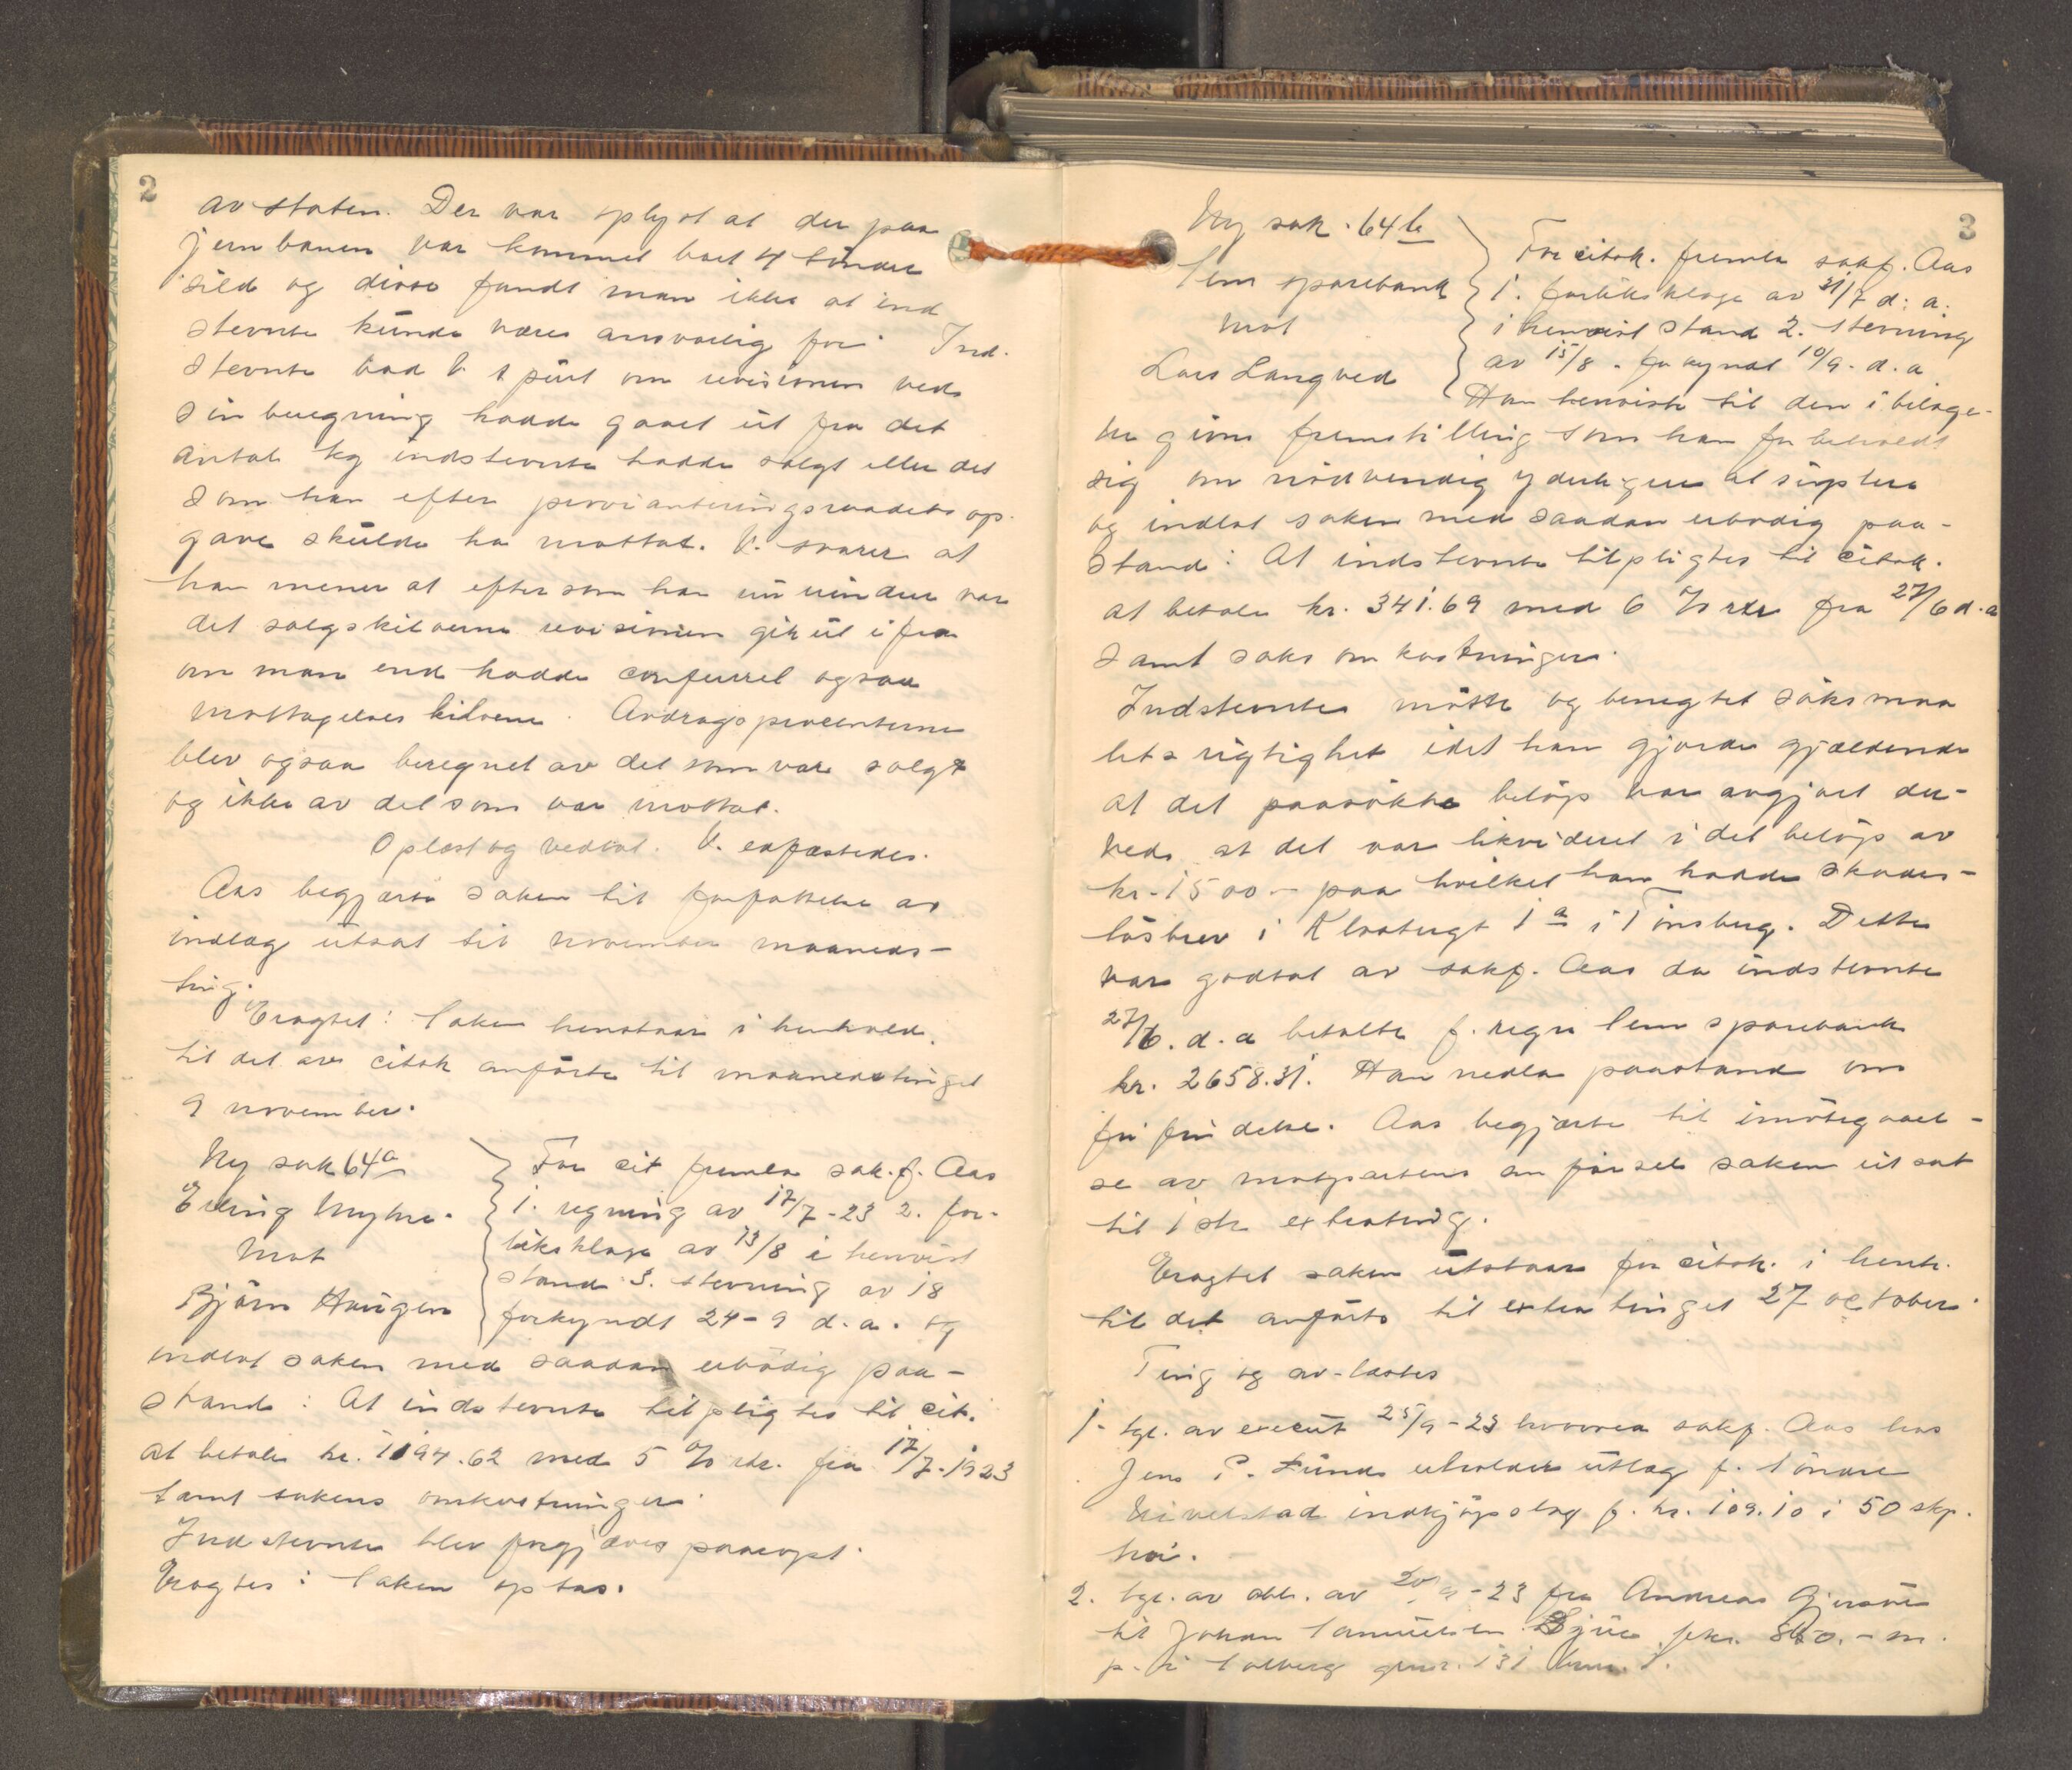 2
av staten. Der var oplyst at der paa
jernbanen var kommet bort 4 tönder
sild og disse fandt man ikke at ind
stevnte kunde være ansvarlig for. Ind-
stevnte bad V. spurt om revisionen ved
sin beregning hadde gaaet ut fra det
antal kg indstevnte hadde solgt eller det
som han efter provianteringsraadets op-
gave skulde ha mottat. V. svarer at
han mener at eftersom han nu mindes var
det salgskiloerne revisionen gik ut ifra
om man end hadde conferert ogsaa
mottagelses kiloene. Avdragsprocenterne
blev ogsaa beregnet av det som var solgt
og ikke av det som var mottat.
Oplæst og vedtat. V.
Aas begjærte saken til forfattelse av
indlæg utsat til november maaneds-
ting.
Eragtet: Saken henstaar i henhold
til det av citok anförte til maanedstinget
9 november.
Ny sak 64a
Erling Myhre.
mot
Björn Haugen
For cit fremla sak.f. Aas
1. regning av 17/7-23 2. for-
liksklage av 13/8 i henvist
stand 3. stevning av 18
forkyndt 24-9 d.a. og
indlot saken med saadan erbödig paa-
stand: At indstevnte tilpligtes til cit.
at betale kr. 1194.62 med 5 % rtr. fra 17/7-1923
samt sakens omkostninger.
Indstevnte blev forgjæves paaropt.
Eragtes: Saken optas.
3
Ny sak. 64b
Sem sparebank
mot
Lars Langved
For citok. fremla sakf. Aas
1. forliksklage av 31/7 d.a.
i henvist stand 2. stevning
av 15/8. forkyndt 10/9. d.a.
Han henviste til den i bilage-
ne givne fremstilling som han forbeholdt
sig om nödvendig yderligere at suplere
og indlot saken med saadan erbödig paa-
stand: At indstevnte tilpligtes til citok.
at betale kr. 341.69 med 6 % rtr fra 27/6 d.a
samt saks omkostninger.
Indstevnte mötte og benegtet söksmaa
lets rigtighet idet han gjorde gjældende
at det paasökte belöp var avgjort der-
ved at det var likvideret i det belöp av
kr. 1500- paa hvilket han hadde skades-
lösbrev i Klostergt 1a i Tönsberg. Dette
var godtat av sakf. Aas da indstevnte
27/6. d.a betalte f. regn Sem sparebank
kr. 2658.31. Han nedla paastand om
frifindelse. Aas begjærte til imötegaael-
se av motpartens anförsel saken utsat
til 1ste extrating.
Eragtet saken utstaar for citok. i henh.
til det anförte til extratinget 27 october.
Ting og av-læstes
1. tgl. av execut 25/9-23 hvorved sakf. Aas hos
Jens P. Lund erholder utlæg f. Söndre
indkjöpslag f. kr. 109.10 i 50 skp.
höi.
2. tgl. av obl. av 20/9-23 fra Andreas
til Johan Samuelsen fkr. 800.- m.
p. i Solberg gnr. 131 brnr. 1.